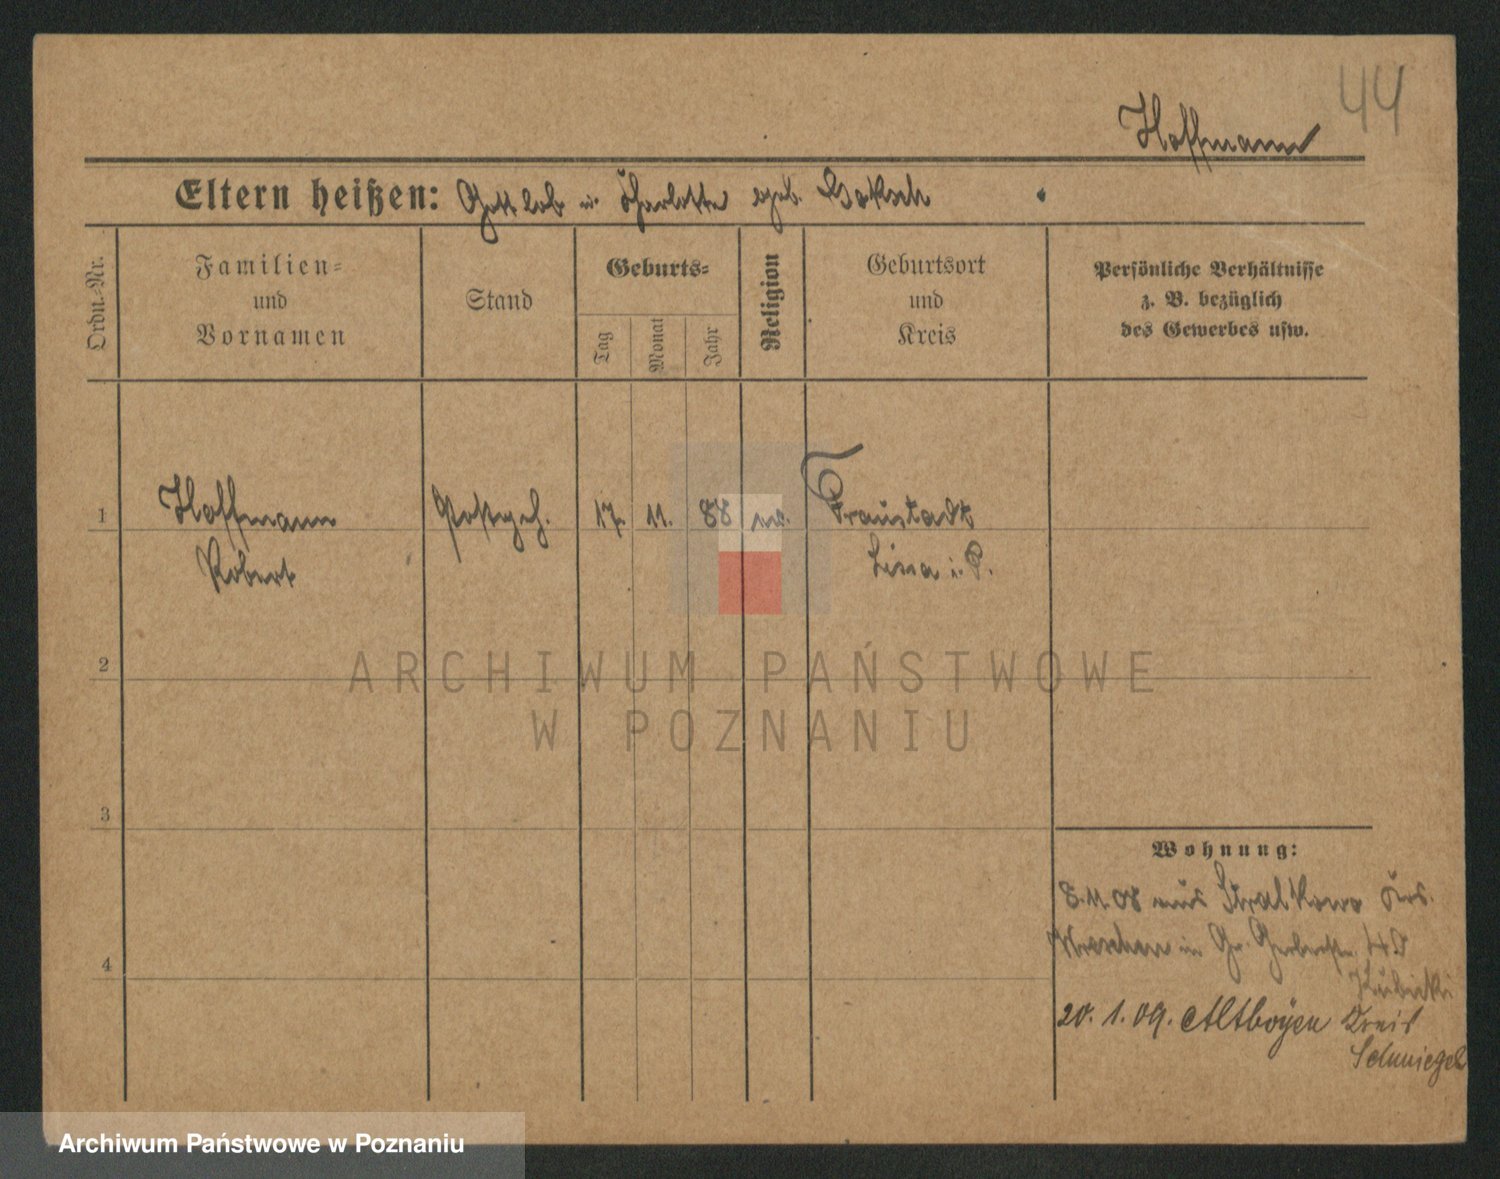 44
Hoffmann
Eltern heißen: Gottlob u. Charlotte geb.
Ordn.-Nr.
Familien-
und
Vornamen
Stand
Geburts-
Tag
Monat
Jahr
Religion
Geburtsort
und
Kreis
Persönliche Verhältnisse
z. B. bezüglich
des Gewerbes usw.
1
Hoffmann
Robert
Postgeh.
17.
11.
88
Fraustadt
Lissa i. P.
2
3
4
Wohnung:
8.11.08 aus Stralkowo Krs.
Wreschen in Gr. Gerberstr.
20. 1. 09. Altboyen Kreis
Schmiegel
ARCHIWUM PAŃSTWOWE
W POZNANIU
Archiwum Państwowe w Poznaniu